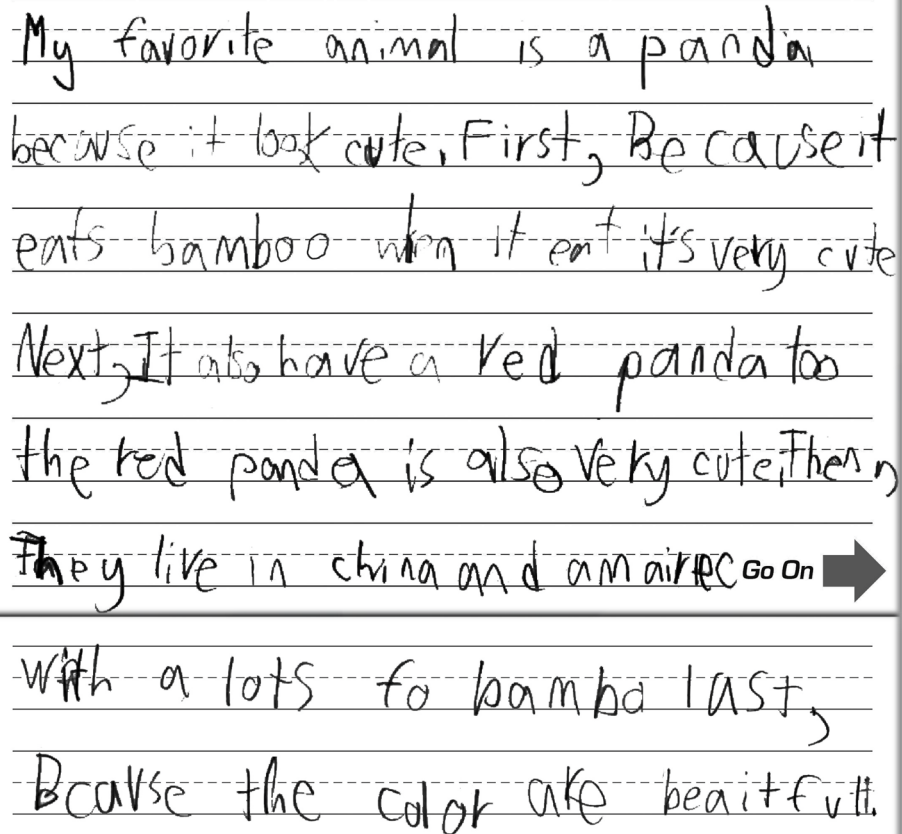 My favorite animal is a panda
because it look cute. First, Because it
eats bamboo when it eat it's very cute
Next, It also have a red panda too
the red panda is also very cute, Then,
They live in china and amairec Go On
with a lots fo bambo last,
Bcause the color are beaitfull.